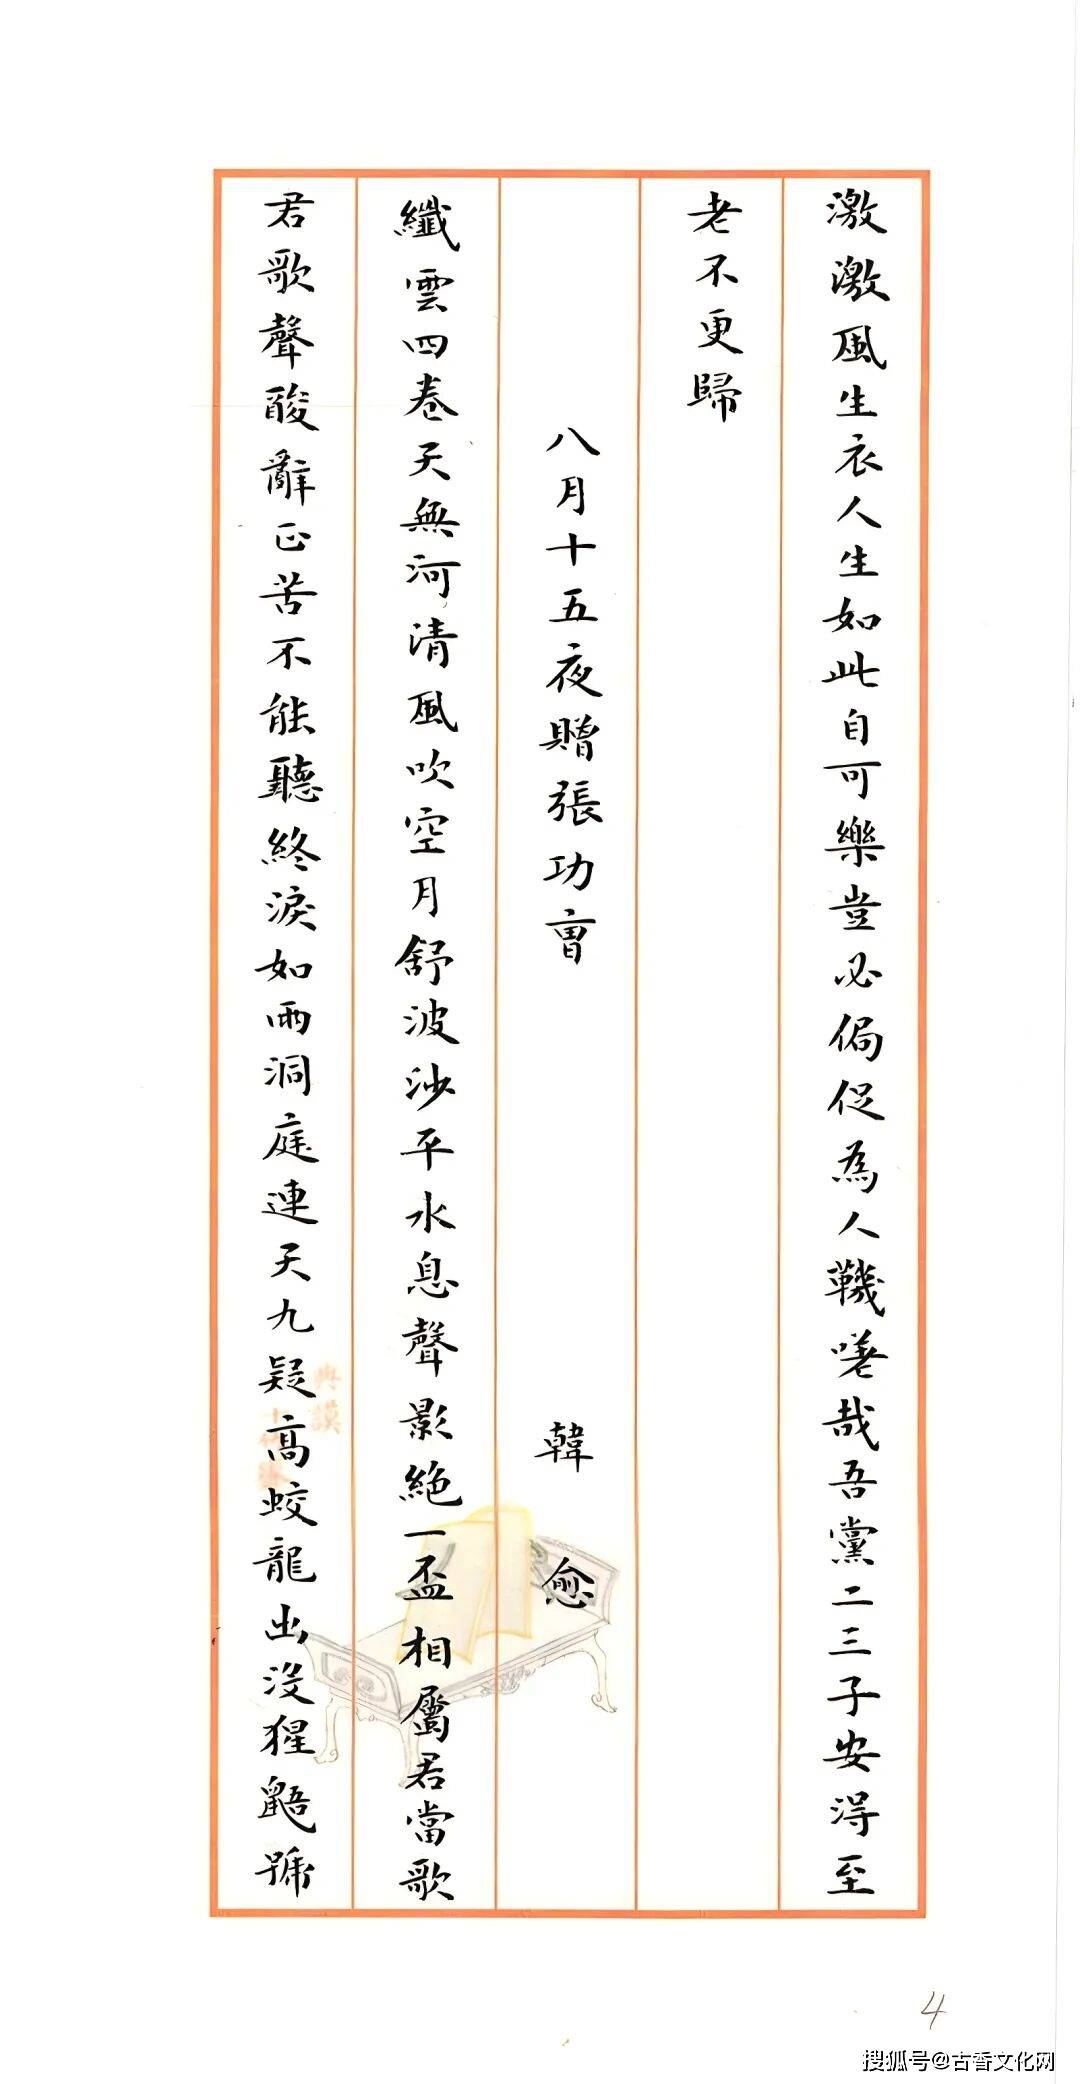 激激風生衣人生如此自可樂豈必侷促為人鞿嗟哉吾黨二三子安得至
老不更歸
八月十五夜贈張功曹 韓愈
纖雲四卷天無河清風吹空月舒波沙平水息聲影絕一盃相屬君當歌
君歌聲酸辭正苦不能聽終淚如雨洞庭連天九疑高蛟龍出沒猩鼯號
4
搜狐号@古香文化网